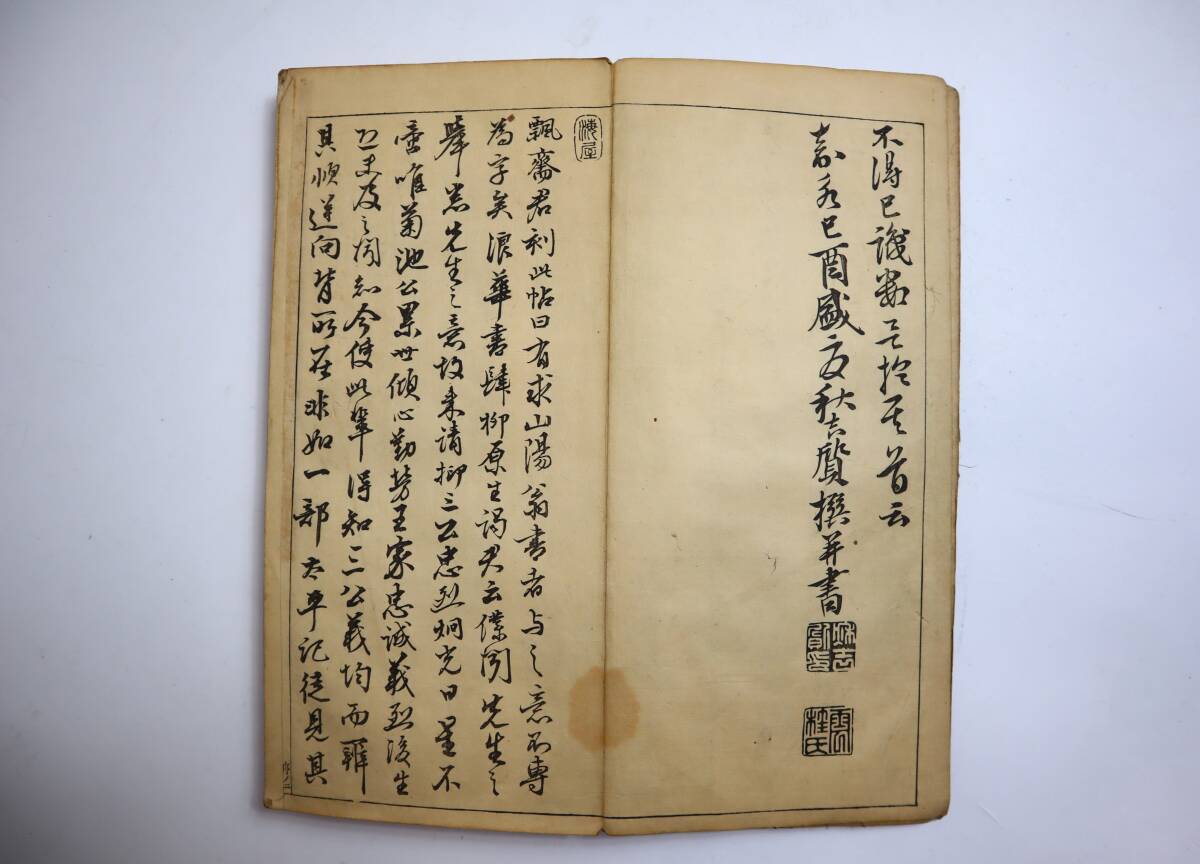 不得已識数言於其首云
嘉永己酉盛夏秋吉質撰并書
海屋
飄齋君刻此帖曰有求山陽翁書者与之意不専
為字矣浪華書肆柳原生謁君云僕聞先生之
舉悉先生之意故来請抑三公忠烈炯光日星不
啻唯菊池公累世傾心勤労王家忠誠義烈後生
恐未及之周知今使此輩得知三公義均而辨
其順逆向背所在非如一部太平記徒見其